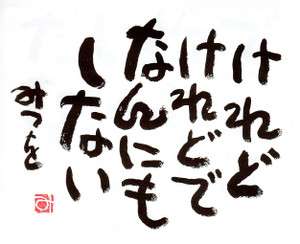 けれど
けれどで
なんにも
しない
みつを